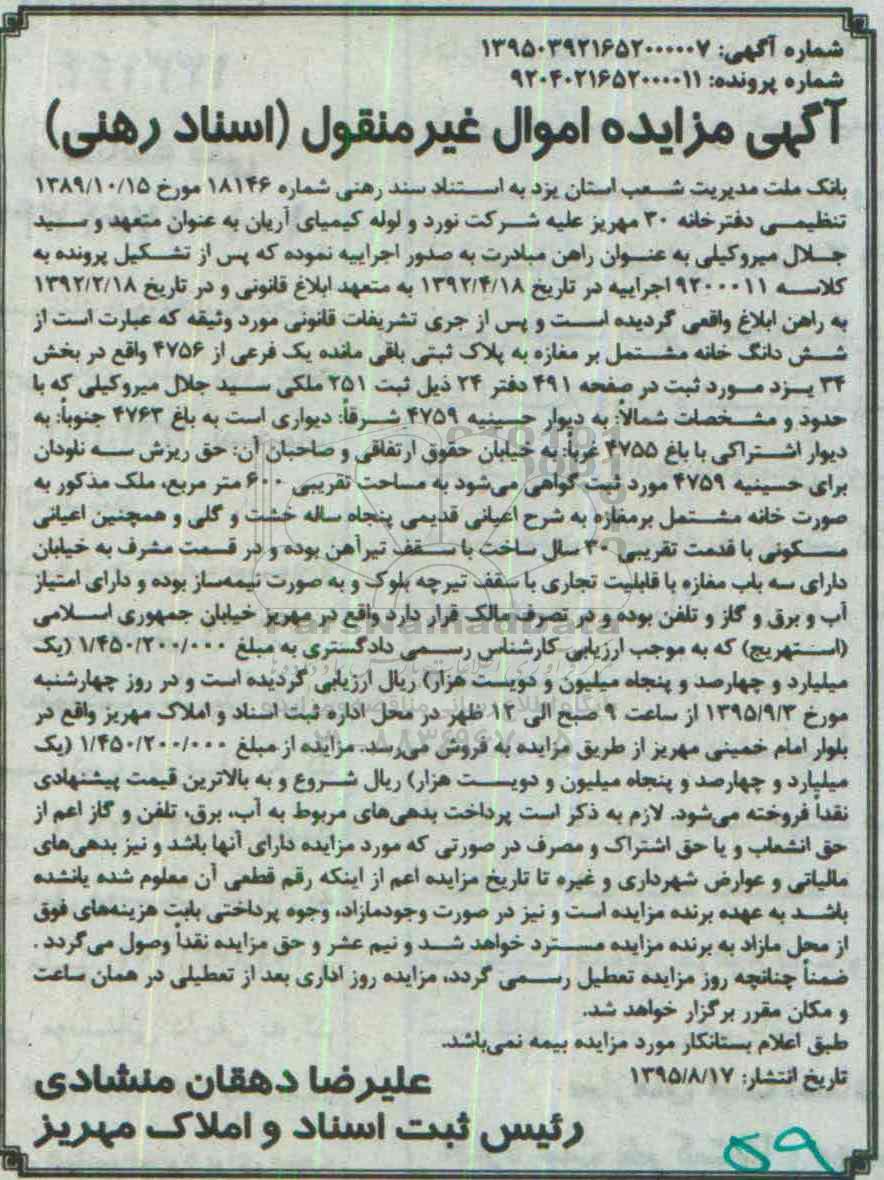 شماره آگهی: ۱۳۹۵۰۳۹۲۱۶۵۲۰۰۰۰۰۷
شماره پرونده: ۹۲۰۴۰۲۱۶۵۲۰۰۰۰۱۱
آگهی مزایده اموال غیرمنقول (اسناد رهنی)
بانک ملت مدیریت شعب استان یزد به استناد سند رهنی شماره ۱۸۱۴۶ مورخ ۱۳۸۹/۱۰/۱۵
تنظیمی دفترخانه ۳۰ مهریز علیه شرکت نورد و لوله کیمیای آریان به عنوان متعهد و سید
جلال میروکیلی به عنوان راهن مبادرت به صدور اجراییه نموده که پس از تشکیل پرونده به
کلاسه ۹۲۰۰۰۱۱ اجراییه در تاریخ ۱۳۹۲/۴/۱۸ به متعهد ابلاغ قانونی و در تاریخ ۱۳۹۲/۲/۱۸
به راهن ابلاغ واقعی گردیده است و پس از جری تشریفات قانونی مورد وثیقه که عبارت است از
شش دانگ خانه مشتمل بر مغازه به پلاک ثبتی باقی مانده یک فرعی از ۴۷۵۶ واقع در بخش
۳۴ یزد مورد ثبت در صفحه ۴۹۱ دفتر ۲۴ ذیل ثبت ۲۵۱ ملکی سید جلال میروکیلی که با
حدود و مشخصات شمالاً: به دیوار حسینیه ۴۷۵۹ شرقاً: دیواری است به باغ ۴۷۶۳ جنوباً: به
دیوار اشتراکی با باغ ۴۷۵۵ غرباً: به خیابان حقوق ارتفاقی و صاحبان آن: حق ریزش سه ناودان
برای حسینیه ۴۷۵۹ مورد ثبت گواهی می‌شود به مساحت تقریبی ۶۰۰ متر مربع، ملک مذکور به
صورت خانه مشتمل برمغازه به شرح اعیانی قدیمی پنجاه ساله خشت و گلی و همچنین اعیانی
مسکونی با قدمت تقریبی ۳۰ سال ساخت با سقف تیرآهن بوده و در قسمت مشرف به خیابان
دارای سه باب مغازه با قابلیت تجاری با سقف تیرچه بلوک و به صورت نیمه‌ساز بوده و دارای امتیاز
آب و برق و گاز و تلفن بوده و در تصرف مالک قرار دارد واقع در مهریز خیابان جمهوری اسلامی
(استهریج) که به موجب ارزیابی کارشناس رسمی دادگستری به مبلغ ۱/۴۵۰/۲۰۰/۰۰۰ (یک
میلیارد و چهارصد و پنجاه میلیون و دویست هزار) ریال ارزیابی گردیده است و در روز چهارشنبه
مورخ ۱۳۹۵/۹/۳ از ساعت ۹ صبح الی ۱۲ ظهر در محل اداره ثبت اسناد و املاک مهریز واقع در
بلوار امام خمینی مهریز از طریق مزایده به فروش می‌رسد. مزایده از مبلغ ۱/۴۵۰/۲۰۰/۰۰۰ (یک
میلیارد و چهارصد و پنجاه میلیون و دویست هزار) ریال شروع و به بالاترین قیمت پیشنهادی
نقداً فروخته می‌شود. لازم به ذکر است پرداخت بدهی‌های مربوط به آب، برق، تلفن و گاز اعم از
حق انشعاب و یا حق اشتراک و مصرف در صورتی که مورد مزایده دارای آنها باشد و نیز بدهی‌های
مالیاتی و عوارض شهرداری و غیره تا تاریخ مزایده اعم از اینکه رقم قطعی آن معلوم شده یانشده
باشد به عهده برنده مزایده است و نیز در صورت وجودمازاد، وجوه پرداختی بابت هزینه‌های فوق
از محل مازاد به برنده مزایده مسترد خواهد شد و نیم عشر و حق مزایده نقداً وصول می‌گردد .
ضمناً چنانچه روز مزایده تعطیل رسمی گردد، مزایده روز اداری بعد از تعطیلی در همان ساعت
و مکان مقرر برگزار خواهد شد.
طبق اعلام بستانکار مورد مزایده بیمه نمی‌باشد.
تاریخ انتشار: ۱۳۹۵/۸/۱۷
علیرضا دهقان منشادی
رئیس ثبت اسناد و املاک مهریز
۵۹
ParsNamadData